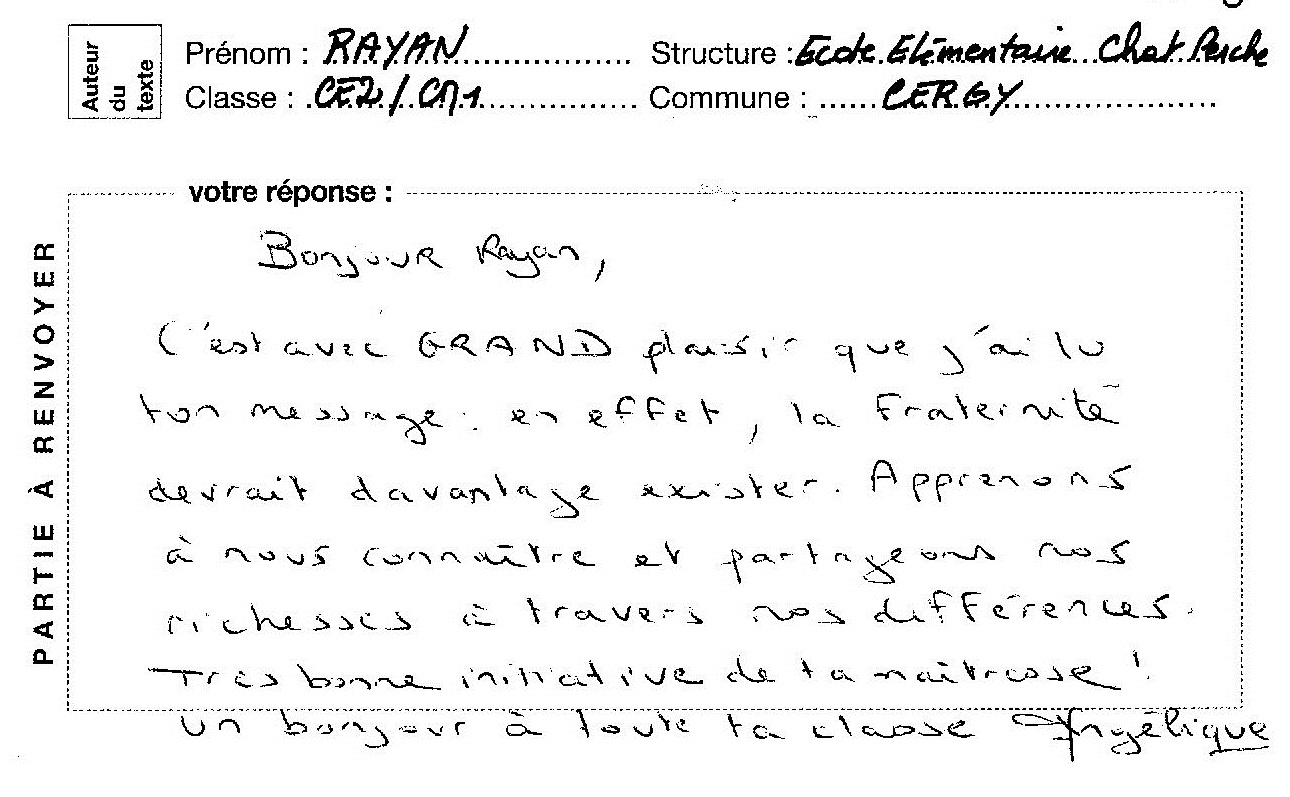 Auteur du texte
Prénom : RAYAN Structure : Ecole Elémentaire Chat Perché
Classe : CE2/CM1 Commune : CERGY
votre réponse :
PARTIE À RENVOYER
Bonjour Rayan,
C'est avec GRAND plaisir que j'ai lu
ton message : en effet, la Fraternité
devrait davantage exister. Apprenons
à nous connaître et partageons nos
richesses à travers nos différences.
Très bonne initiative de ta maîtresse !
Un bonjour à toute ta classe Angélique